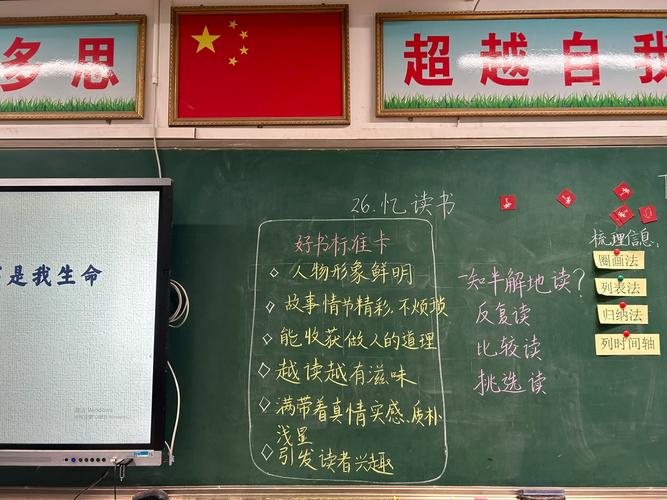 多思
超越自我
是我生命
激活 Windows
26.忆读书
好书标准卡
◇ 人物形象鲜明
◇ 故事情节精彩,不烦琐
◇ 能收获做人的道理
◇ 越读越有滋味
◇ 满带着真情实感、质朴
浅显
◇ 引发读者兴趣
一知半解地读?
反复读
比较读
挑选读
梳理信息:
圈画法
列表法
归纳法
列时间轴